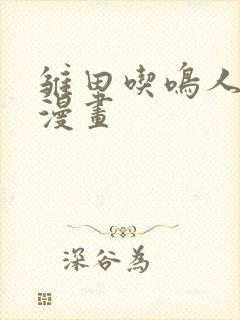 雏田喫鳴人
漫畫
深谷為